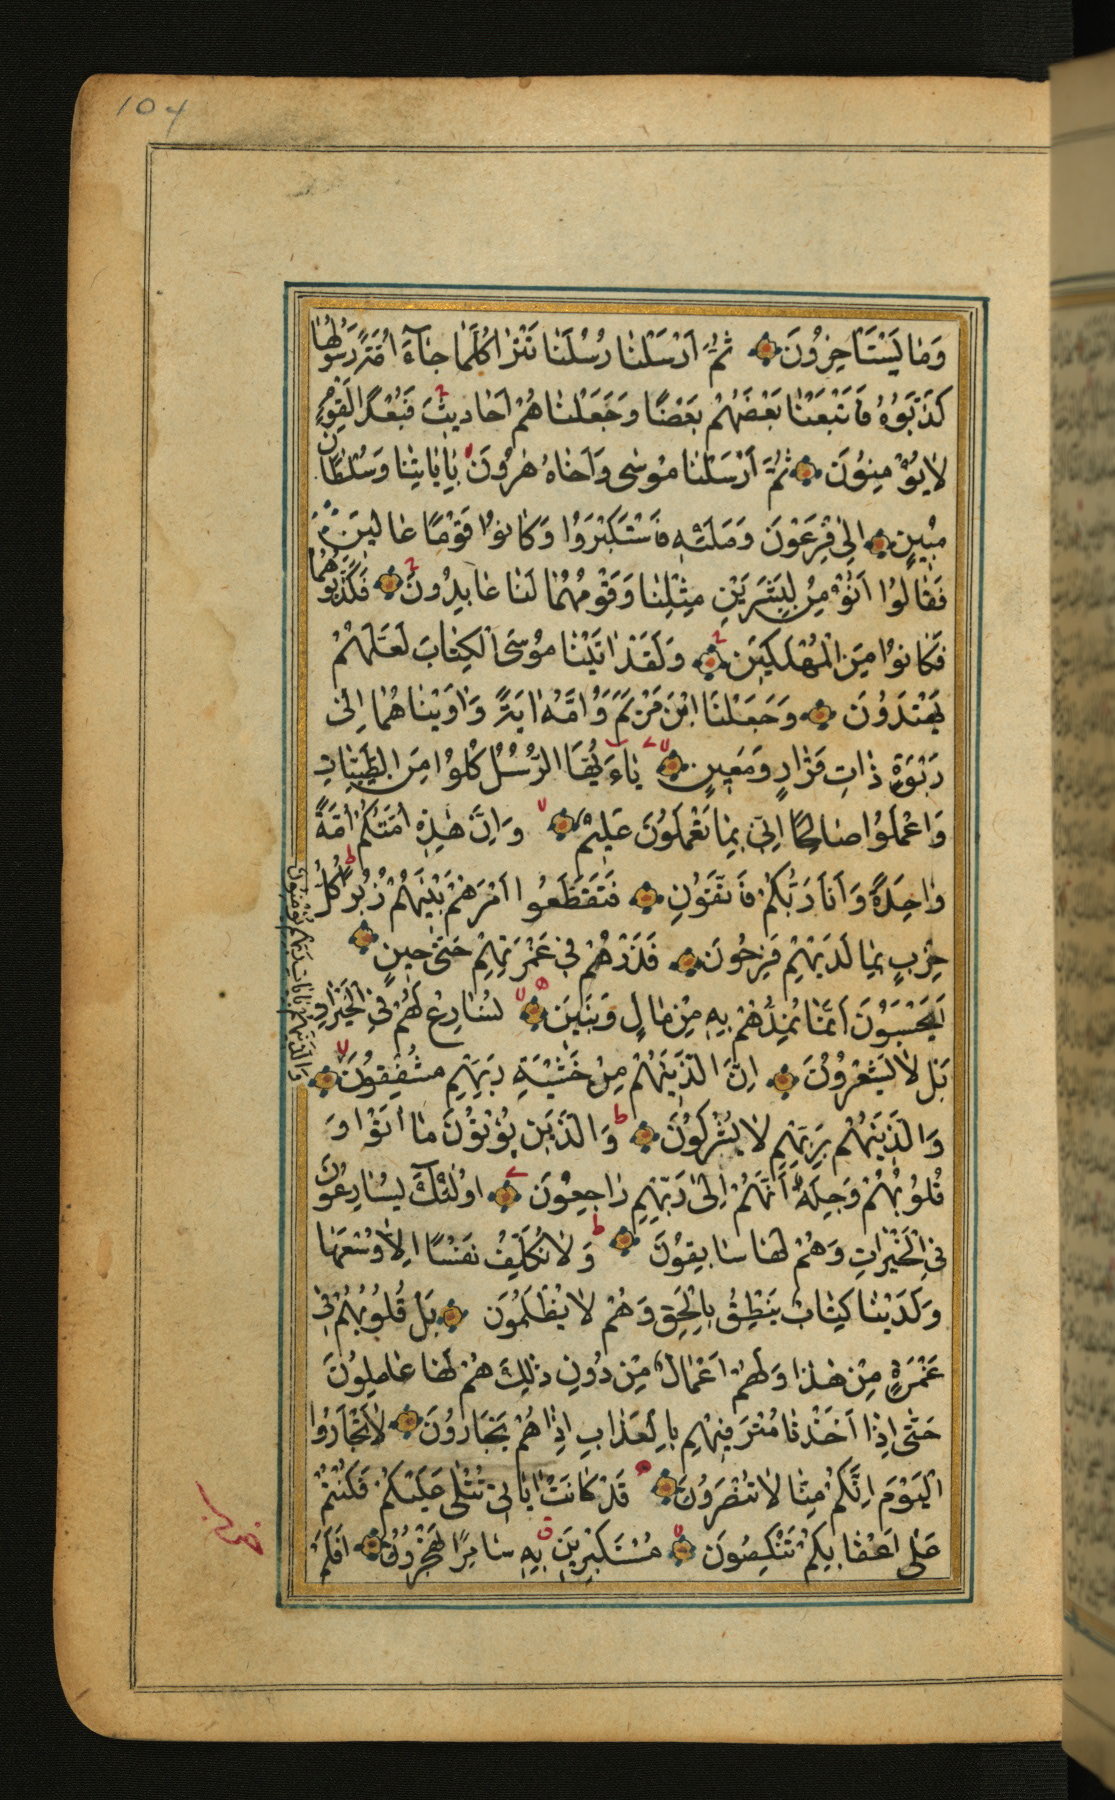 104
وَمَا يَسْتَأخِرُونَ ثُمَّ اَرْسَلْنَا رُسُلَنَا تَتْرَا كُلَّمَا جَاءَ اُمَّةً رَسُولُهَا
كَذَّبُوهُ فَاَتْبَعْنَا بَعْضَهُمْ بَعْضًا وَجَعَلْنَاهُمْ اَحَادِيثَ فَبُعْدًا لِقَوْمٍ
لَا يُؤْمِنُونَ ثُمَّ اَرْسَلْنَا مُوسٰى وَاَخَاهُ هٰرُونَ بِاٰيَاتِنَا وَسُلْطَانٍ
مُبِينٍ اِلٰى فِرْعَوْنَ وَمَلَئِهٖ فَاسْتَكْبَرُوا وَكَانُوا قَوْمًا عَالِينَ
فَقَالُوا اَنُؤْمِنُ لِبَشَرَيْنِ مِثْلِنَا وَقَوْمُهُمَا لَنَا عَابِدُونَ فَكَذَّبُوهُمَا
فَكَانُوا مِنَ الْمُهْلَكِينَ وَلَقَدْ اٰتَيْنَا مُوسَى الْكِتَابَ لَعَلَّهُمْ
يَهْتَدُونَ وَجَعَلْنَا ابْنَ مَرْيَمَ وَاُمَّهُ اٰيَةً وَاٰوَيْنَاهُمَا اِلٰى
رَبْوَةٍ ذَاتِ قَرَارٍ وَمَعِينٍ يَاءَيُّهَا الرُّسُلُ كُلُوا مِنَ الطَّيِّبَاتِ
وَاعْمَلُوا صَالِحًا اِنِّى بِمَا تَعْمَلُونَ عَلِيمٌ وَاِنَّ هٰذِهٖ اُمَّتُكُمْ اُمَّةً
وَاحِدَةً وَاَنَا رَبُّكُمْ فَاتَّقُونِ فَتَقَطَّعُوا اَمْرَهُمْ بَيْنَهُمْ زُبُرًا كُلُّ
حِزْبٍ بِمَا لَدَيْهِمْ فَرِحُونَ فَذَرْهُمْ فِى غَمْرَتِهِمْ حَتّٰى حِينٍ
اَيَحْسَبُونَ اَنَّمَا نُمِدُّهُمْ بِهٖ مِنْ مَالٍ وَبَنِينَ نُسَارِعُ لَهُمْ فِى الْخَيْرَاتِ
بَلْ لَا يَشْعُرُونَ اِنَّ الَّذِينَ هُمْ مِنْ خَشْيَةِ رَبِّهِمْ مُشْفِقُونَ
وَالَّذِينَ هُمْ بِاٰيَاتِ رَبِّهِمْ يُؤْمِنُونَ
وَالَّذِينَ هُمْ بِرَبِّهِمْ لَا يُشْرِكُونَ وَالَّذِينَ يُؤْتُونَ مَا اٰتَوْا وَ
قُلُوبُهُمْ وَجِلَةٌ اَنَّهُمْ اِلٰى رَبِّهِمْ رَاجِعُونَ اُولٰئِكَ يُسَارِعُونَ
فِى الْخَيْرَاتِ وَهُمْ لَهَا سَابِقُونَ وَلَا نُكَلِّفُ نَفْسًا اِلَّا وُسْعَهَا
وَلَدَيْنَا كِتَابٌ يَنْطِقُ بِالْحَقِّ وَهُمْ لَا يُظْلَمُونَ بَلْ قُلُوبُهُمْ فِى
غَمْرَةٍ مِنْ هٰذَا وَلَهُمْ اَعْمَالٌ مِنْ دُونِ ذٰلِكَ هُمْ لَهَا عَامِلُونَ
حَتّٰى اِذَا اَخَذْنَا مُتْرَفِيهِمْ بِالْعَذَابِ اِذَا هُمْ يَجْاَرُونَ لَا تَجْاَرُوا
الْيَوْمَ اِنَّكُمْ مِنَّا لَا تُنْصَرُونَ قَدْ كَانَتْ اٰيَاتِى تُتْلٰى عَلَيْكُمْ فَكُنْتُمْ
عَلٰى اَعْقَابِكُمْ تَنْكِصُونَ مُسْتَكْبِرِينَ بِهٖ سَامِرًا تَهْجُرُونَ اَفَلَمْ